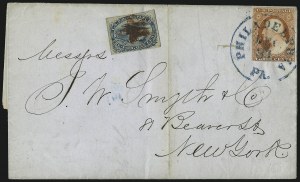 Messrs
J. W. Smyth & Co
81 Beaver St
New York
PHILADELPHIA
PA.